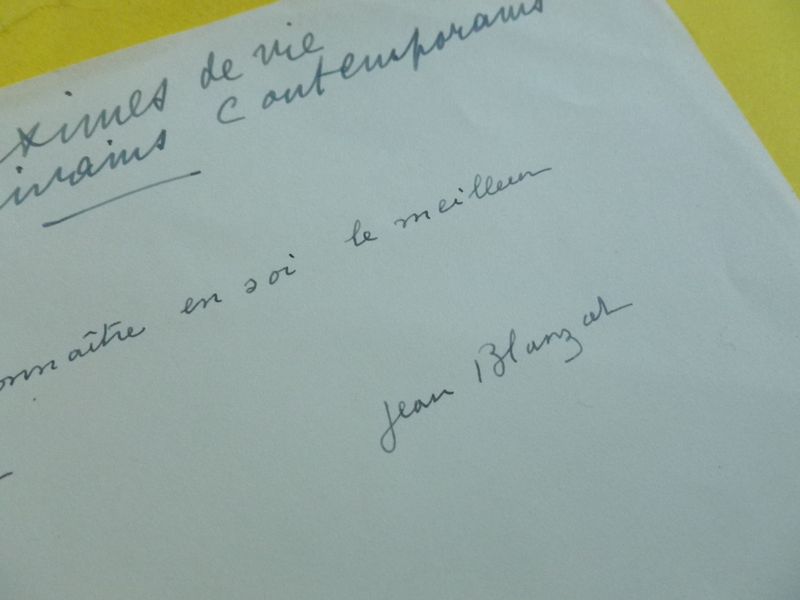 ximes de vie
ivains Contemporains
onnaître en soi le meilleur
Jean Blanzat